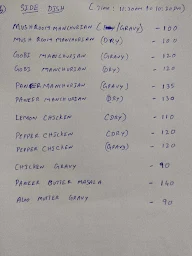 SIDE DISH (Time: 12:30pm to 10:20pm)
MUSHROOM MANCHURIAN (GRAVY) - 100
MUSHROOM MANCHURIAN (DRY) - 100
GOBI MANCHURIAN (GRAVY) - 120
GOBI MANCHURIAN (DRY) - 120
PANEER MANCHURIAN (GRAVY) - 135
PANEER MANCHURIAN (DRY) - 130
LEMON CHICKEN (DRY) - 110
PEPPER CHICKEN (DRY) - 120
PEPPER CHICKEN (GRAVY) - 130
CHICKEN GRAVY - 90
PANEER BUTTER MASALA - 140
ALOO MUTTER GRAVY - 90